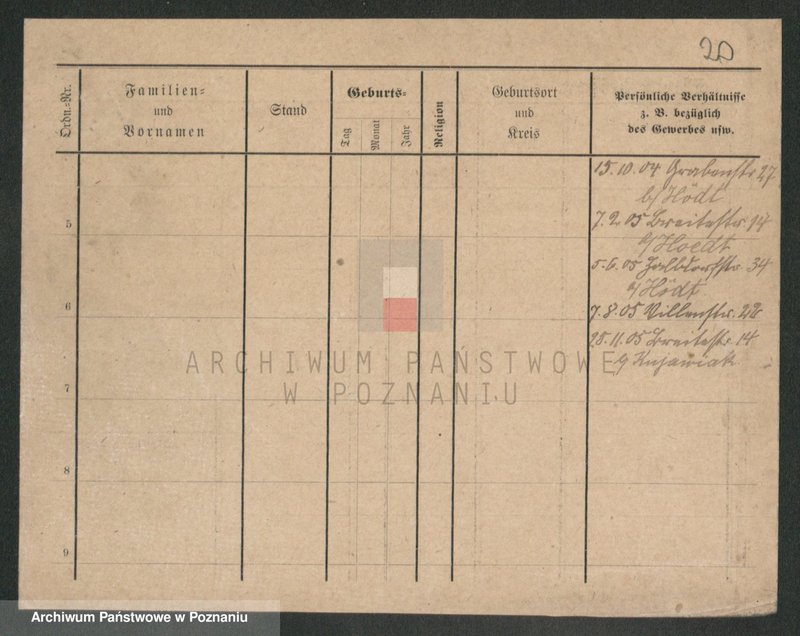 20
Ordn.-Nr.
Familien-
und
Vornamen
Stand
Geburts-
Tag
Monat
Jahr
Religion
Geburtsort
und
Kreis
Persönliche Verhältnisse
z. B. bezüglich
des Gewerbes usw.
15.10.04 Grabenstr 27
b/Hödt
5
7.2.05 Breitestr. 14
g/Hoedt
5.6.05 Halbdorfstr. 34
g/Hödt
6
7.8.05 Villenstr. 28
25.11.05 Breitestr. 14
g Kujawiak
7
8
9
ARCHIWUM PAŃSTWOWE
W POZNANIU
Archiwum Państwowe w Poznaniu